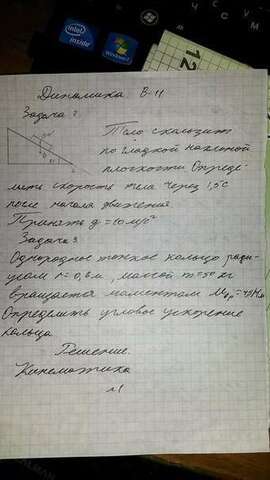 intel
inside
Windows 7
12
Динамика В-11
Задача 2
Тело скользит
по гладкой наклонной
плоскости. Опреде-
лить скорость тела через 1,5 с
после начала движения.
Принять g = 10 м/с²
Задача 3
Однородное тонкое кольцо ради-
усом r = 0,8 м, массой m = 50 кг
вращается моментом
Определить угловое ускорение
кольца
Решение.
Кинематика
№1